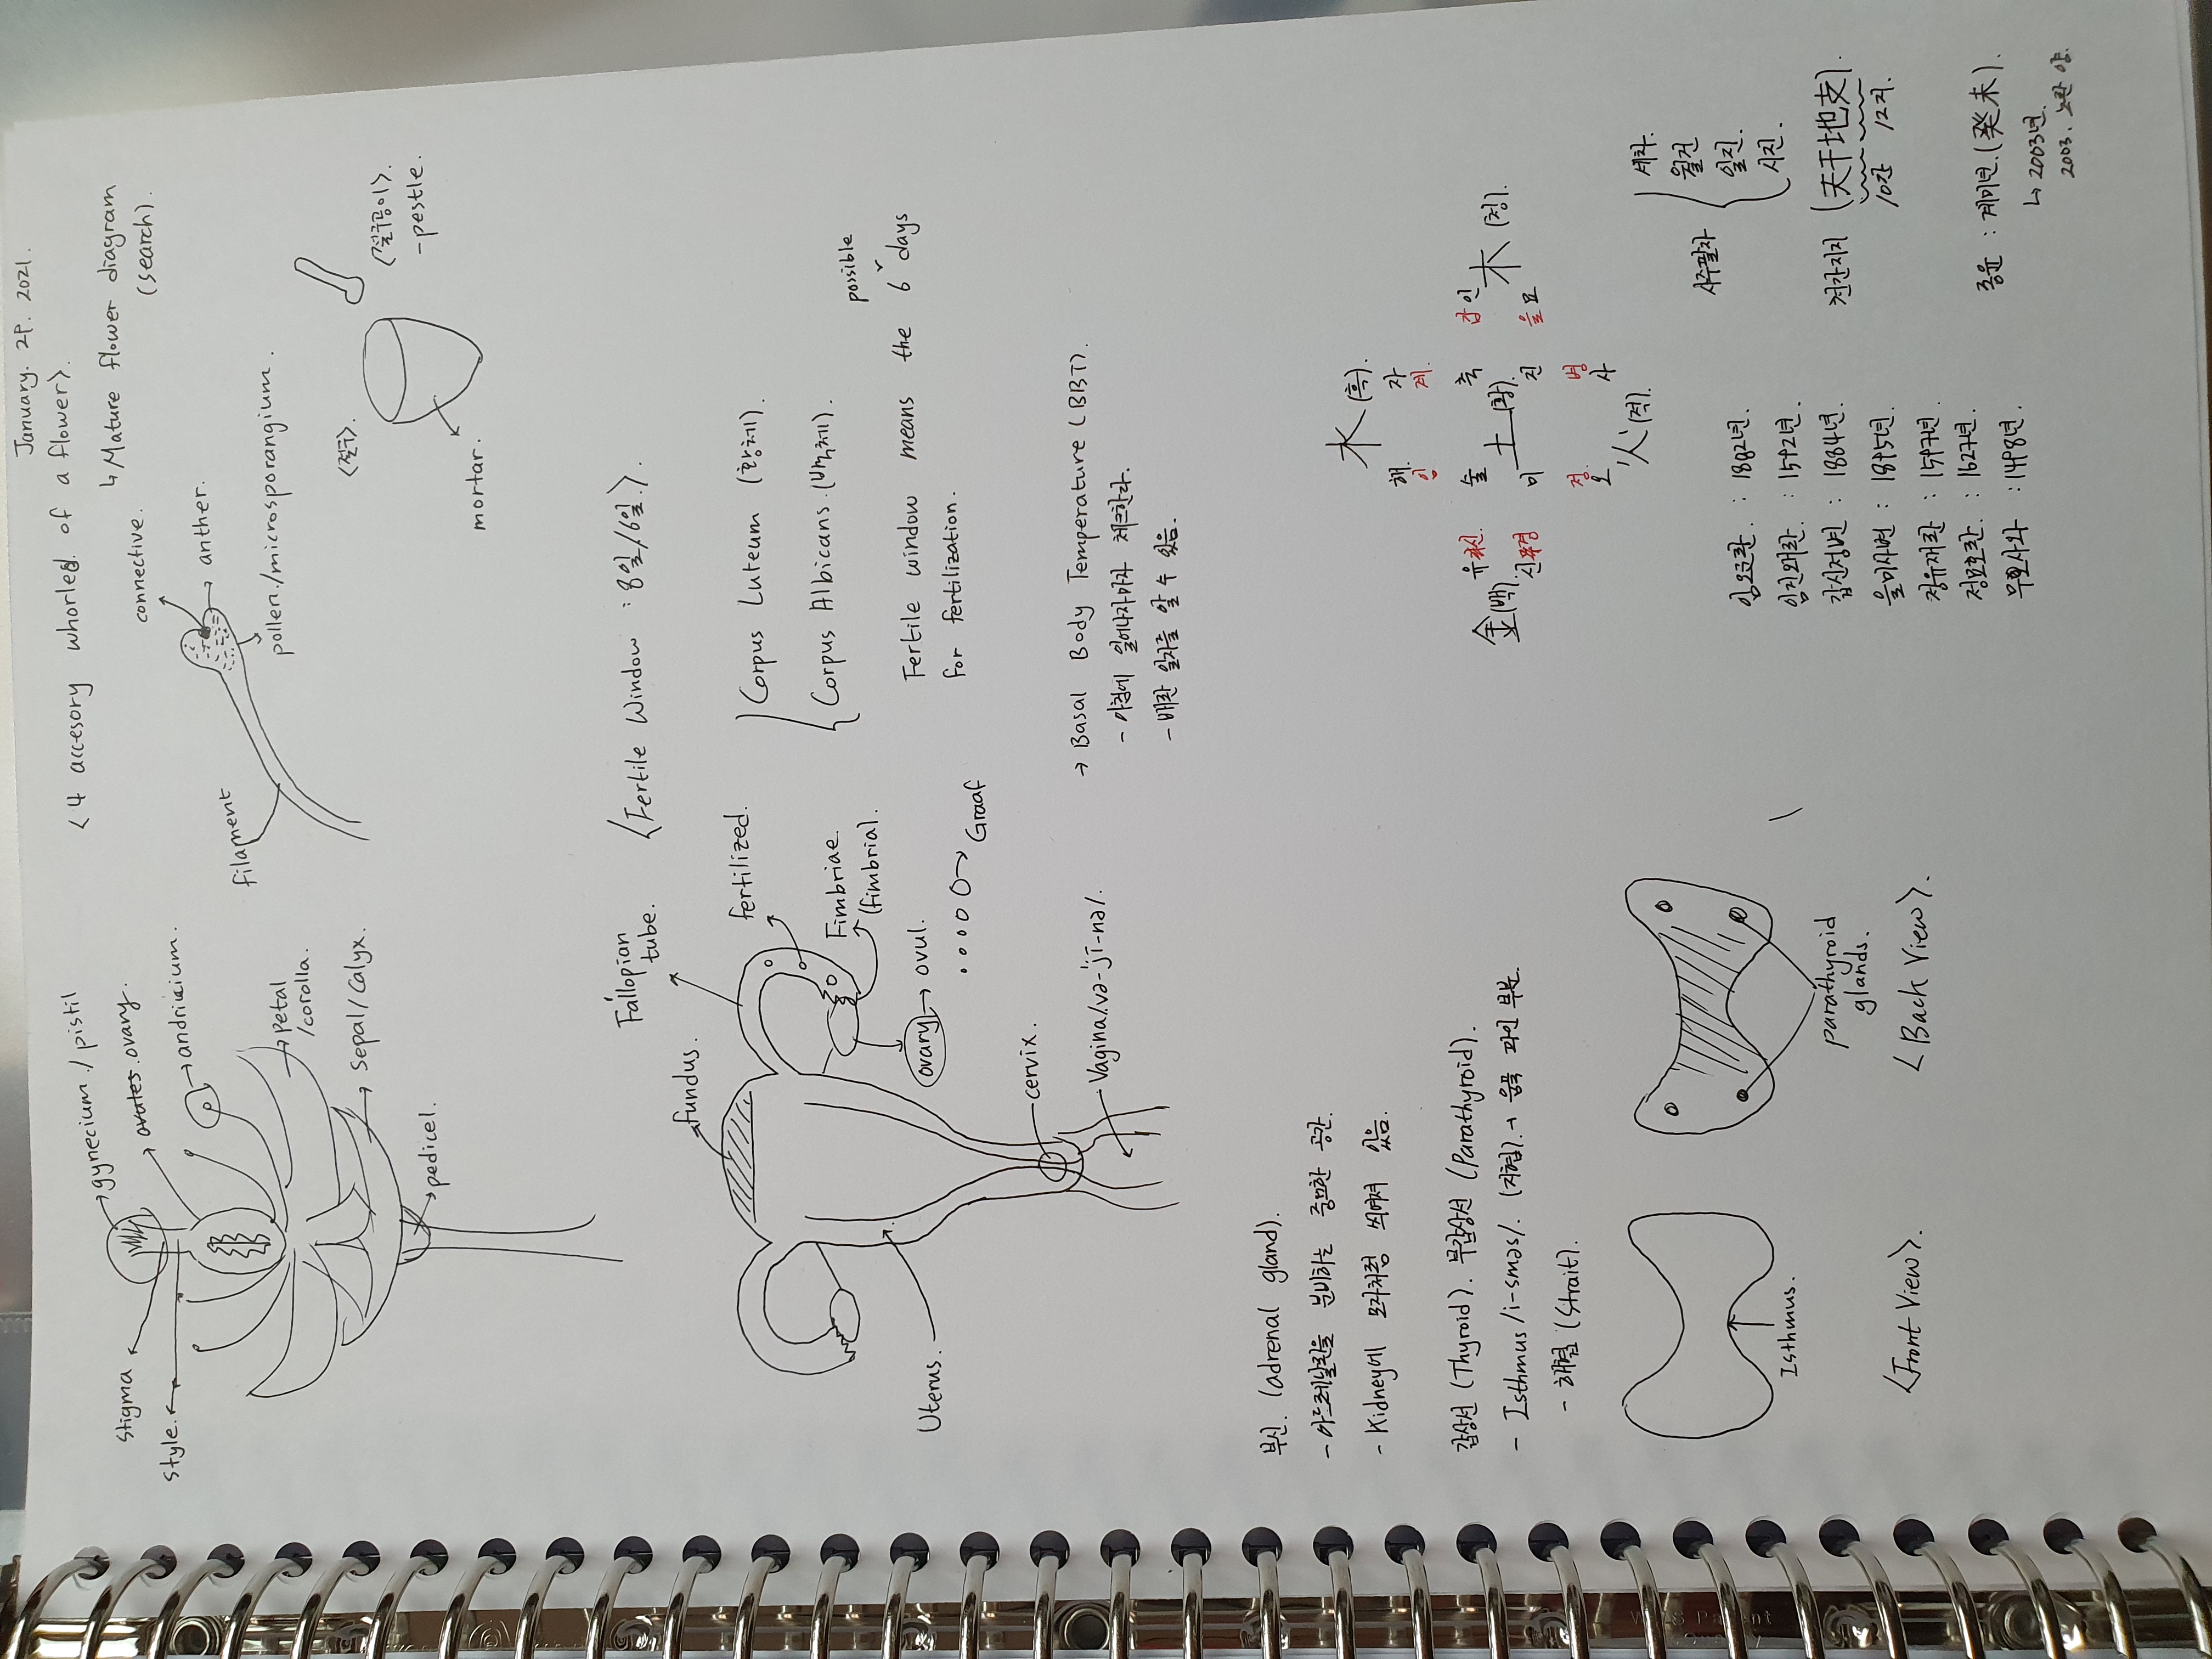 January. 29. 2021.
< 4 accesory whorled of a flower>.
↳ Mature flower diagram
(search).
gynecium./pistil
ovary.
andricium.
Stigma
style.
petal
/corolla.
Sepal/Calyx.
pedicel.
connective.
anther.
pollen./microsporangium.
filament
<절구>.
<절구공이>.
-pestle.
mortar.
<Fertile Window : 8일/6일.>
Fallopian
tube.
fundus.
fertilized.
Fimbriae.
(fimbrial).
ovary → ovul.
Graaf
cervix.
Vagina/və-'jī-nə/.
Uterus.
Corpus Luteum (황체).
Corpus Albicans.(백체).
possible
Fertile window means the 6 days
for fertilization.
→ Basal Body Temperature (BBT).
- 아침에 일어나자마자 체크한다.
- 배란 일자를 알 수 있음.
부신. (adrenal gland).
- 아드레날린을 분비하는 중요한 공간.
- Kidney에 모자처럼 씌여져 있음.
갑상선 (Thyroid). 부갑상선 (Parathyroid).
- Isthmus /i-sməs/. (지협).→ 움푹 파인 부분.
- 해협 (Strait).
Isthmus.
<Front View>.
parathyroid
glands.
<Back View>.
水(흑).
해. 자
임 계.
유 신 술 축 갑 인
金(백). 土(황). 木(청).
신 경 미 진 을 묘
정. 병
오 사
火(적).
임오군란. : 1882년.
임진왜란. : 1592년.
갑신정변 : 1884년.
을미사변 : 1895년.
정유재란 : 1597년.
정묘호란. : 1627년.
무오사화 : 1498년.
사주팔자
세차.
월건
일진.
시진.
천간지지 (天干地支).
10간 12지.
종윤 : 계미년.(癸未).
↳ 2003년.
2003.